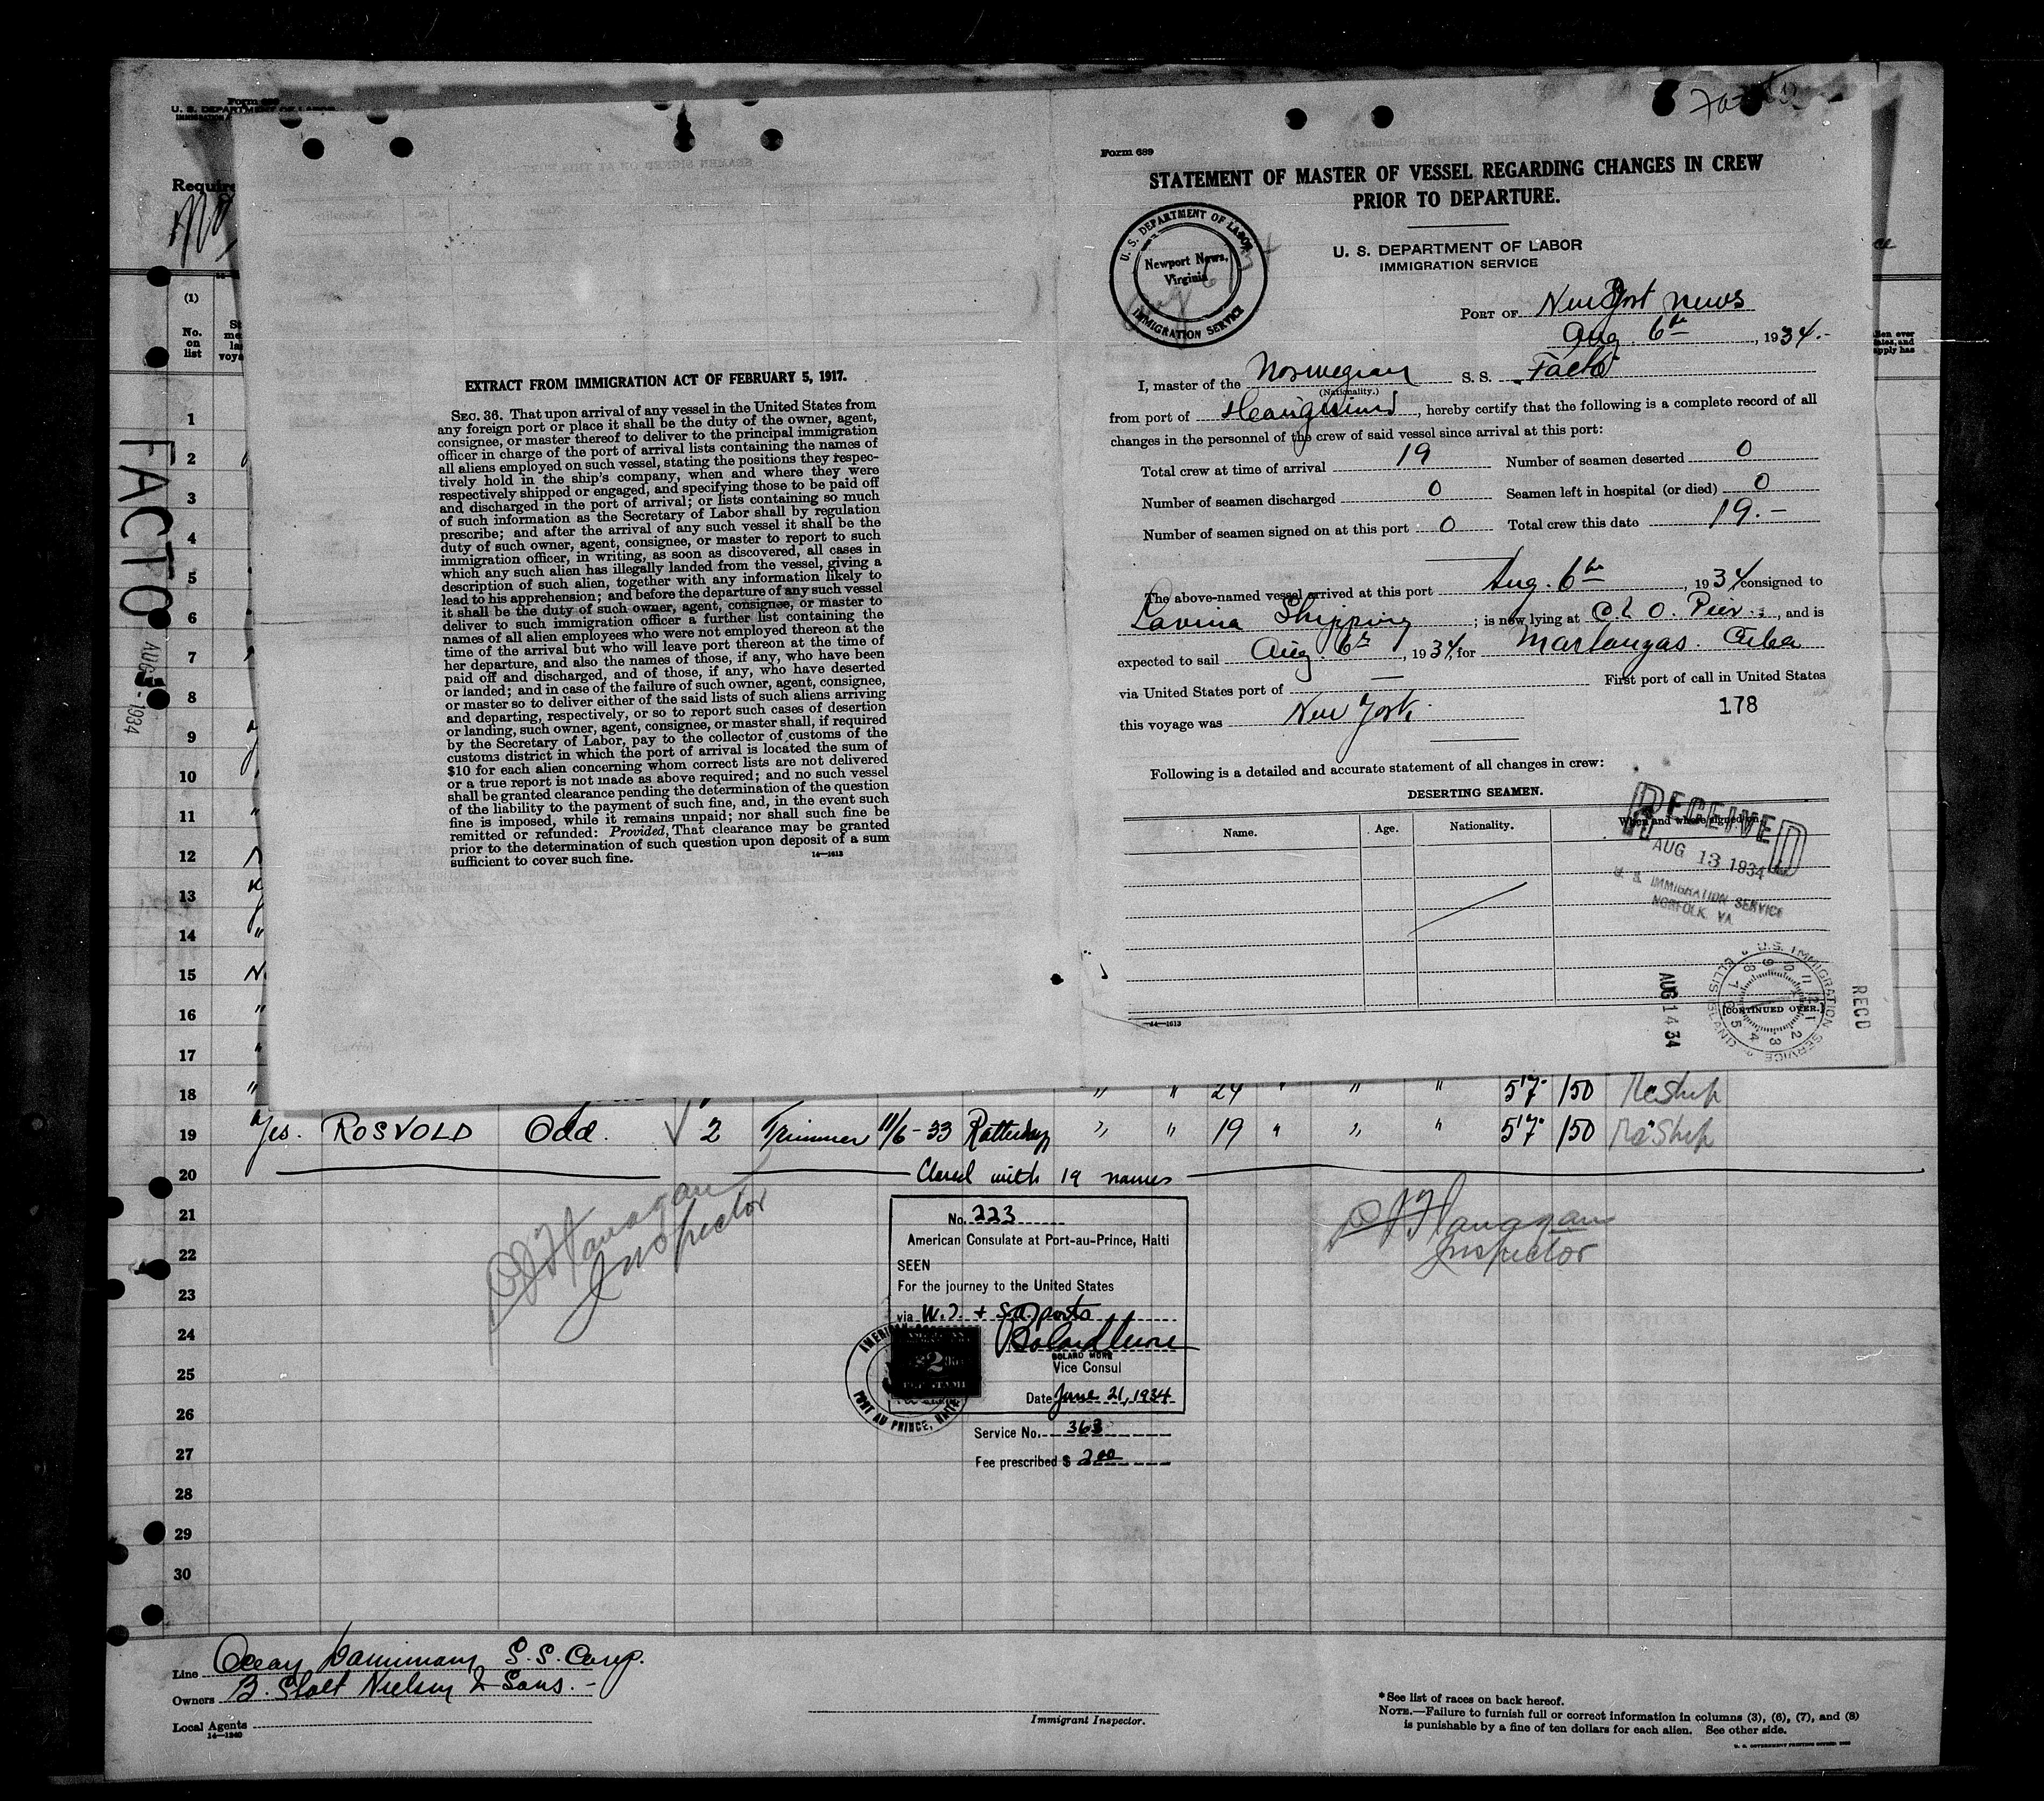 Form 689
U. S. DEPARTMENT OF LABOR
Require
(1)
No. on list
FACTO
AUG 1934
EXTRACT FROM IMMIGRATION ACT OF FEBRUARY 5, 1917.
SEC. 36. That upon arrival of any vessel in the United States from
any foreign port or place it shall be the duty of the owner, agent,
consignee, or master thereof to deliver to the principal immigration
officer in charge of the port of arrival lists containing the names of
all aliens employed on such vessel, stating the positions they respec-
tively hold in the ship's company, when and where they were
respectively shipped or engaged, and specifying those to be paid off
and discharged in the port of arrival; or lists containing so much
of such information as the Secretary of Labor shall by regulation
prescribe; and after the arrival of any such vessel it shall be the
duty of such owner, agent, consignee, or master to report to such
immigration officer, in writing, as soon as discovered, all cases in
which any such alien has illegally landed from the vessel, giving a
description of such alien, together with any information likely to
lead to his apprehension; and before the departure of any such vessel
it shall be the duty of such owner, agent, consignee, or master to
deliver to such immigration officer a further list containing the
names of all alien employees who were not employed thereon at the
time of the arrival but who will leave port thereon at the time of
her departure, and also the names of those, if any, who have been
paid off and discharged, and of those, if any, who have deserted
or landed; and in case of the failure of such owner, agent, consignee,
or master so to deliver either of the said lists of such aliens arriving
and departing, respectively, or so to report such cases of desertion
or landing, such owner, agent, consignee, or master shall, if required
by the Secretary of Labor, pay to the collector of customs of the
customs district in which the port of arrival is located the sum of
$10 for each alien concerning whom correct lists are not delivered
or a true report is not made as above required; and no such vessel
shall be granted clearance pending the determination of the question
of the liability to the payment of such fine, and, in the event such
fine is imposed, while it remains unpaid; nor shall such fine be
remitted or refunded: Provided, That clearance may be granted
prior to the determination of such question upon deposit of a sum
sufficient to cover such fine.
14—1613
Form 689
STATEMENT OF MASTER OF VESSEL REGARDING CHANGES IN CREW
PRIOR TO DEPARTURE.
U. S. DEPARTMENT OF LABOR
IMMIGRATION SERVICE
U. S. DEPARTMENT OF LABOR
Newport News,
Virginia
IMMIGRATION SERVICE
PORT OF Newport News
Aug. 6th, 1934.-
I, master of the Norwegian S. S. Facto
(Nationality.)
from port of, hereby certify that the following is a complete record of all
changes in the personnel of the crew of said vessel since arrival at this port:
Total crew at time of arrival 19 Number of seamen deserted 0
Number of seamen discharged 0 Seamen left in hospital (or died) 0
Number of seamen signed on at this port 0 Total crew this date 19.-
The above-named vessel arrived at this port Aug. 6th, 1934 consigned to
Lavina Shipping; is now lying at C & O. Pier, and is
expected to sail Aug. 6th, 1934, for Cuba
via United States port of — First port of call in United States
this voyage was New York. 178
Following is a detailed and accurate statement of all changes in crew:
DESERTING SEAMEN.
Name. Age. Nationality. When and where signed on.
RECEIVED
AUG 13 1934
U. S. IMMIGRATION SERVICE
NORFOLK, VA.
AUG 14 34
U.S. IMMIGRATION SERVICE ELLIS ISLAND
RECD
[CONTINUED OVER.]
14—1613
1
2
3
4
5
6
7
8
9
10
11
12
13
14
15
16
17
18 " " 24 " " " 5'7" 150 Reship
19 Yes. ROSVOLD Odd. √ 2 Trimmer 11/6-33 " " 19 " " " 5'7" 150 Reship
20 Closed with 19 names
21
22
23
24
25
26
27
28
29
30
Flanagan
Inspector
Flanagan
Inspector
No. 223
American Consulate at Port-au-Prince, Haiti
SEEN
For the journey to the United States
via W.I. + S.A. ports
BOLARD MORE
Vice Consul
Date June 21, 1934
AMERICAN
PORT AU PRINCE, HAITI
Service No. 363
Fee prescribed $ 2.00
Line Ocean S.S. Corp.
Owners B. Stolt Nielsen & Sons.-
Local Agents
14—1240
Immigrant Inspector.
* See list of races on back hereof.
NOTE.—Failure to furnish full or correct information in columns (3), (6), (7), and (8)
is punishable by a fine of ten dollars for each alien. See other side.